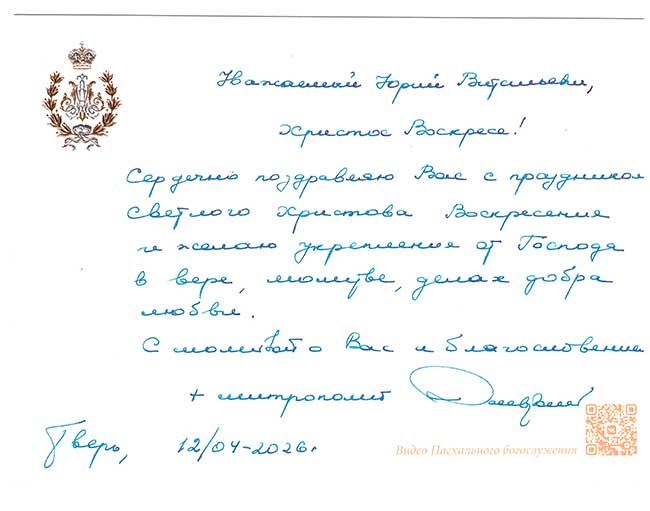 Уважаемый Юрий Витальевич,
Христос Воскресе!
Сердечно поздравляю Вас с праздником
Светлого Христова Воскресения
и желаю укрепления от Господа
в вере, молитве, делах добра
любви.
С молитвой о Вас и благословением
+ митрополит
Тверь, 12/04-2026г.
Видео Пасхального богослужения